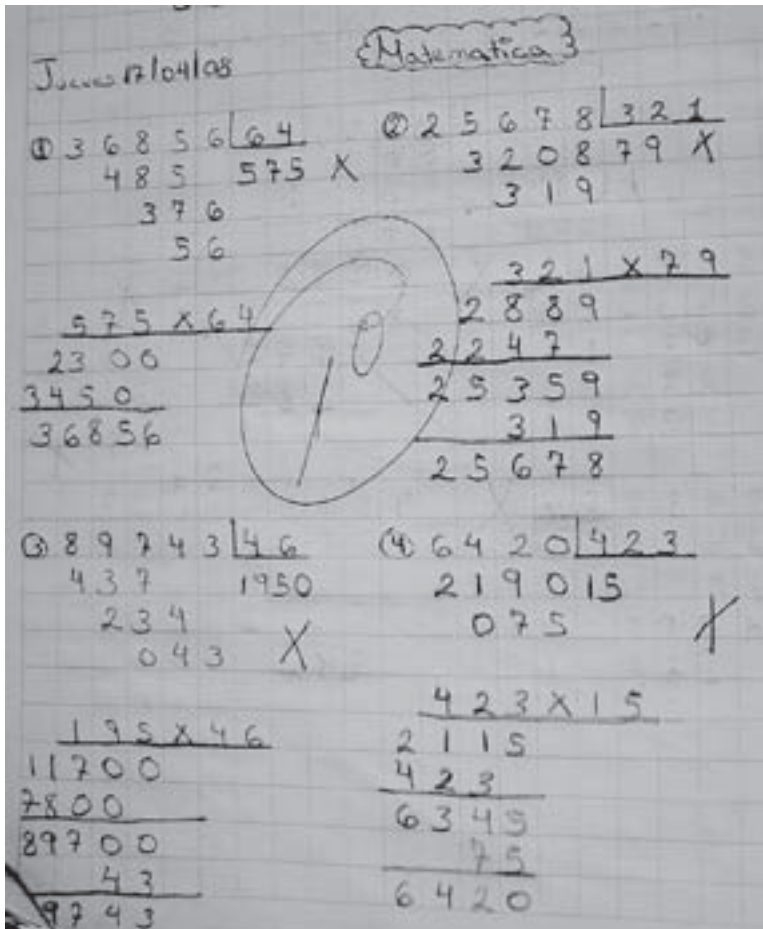 Matematica
Jueves 17/04/08
① 3 6 8 5 6 64
4 8 5 575 X
3 7 6
5 6
5 7 5 X 6 4
2 3 0 0
3 4 5 0
3 6 8 5 6
② 2 5 6 7 8 3 2 1
3 2 0 8 7 9 X
3 1 9
3 2 1 X 7 9
2 8 8 9
2 2 4 7
2 5 3 5 9
3 1 9
2 5 6 7 8
10
③ 8 9 7 4 3 46
4 3 7 1950
2 3 4
0 4 3 X
1 9 5 X 4 6
1 1 7 0 0
7 8 0 0
8 9 7 0 0
4 3
9 7 4 3
(4) 6 4 2 0 4 2 3
2 1 9 0 15
0 7 5 X
4 2 3 X 1 5
2 1 1 5
4 2 3
6 3 4 5
7 5
6 4 2 0